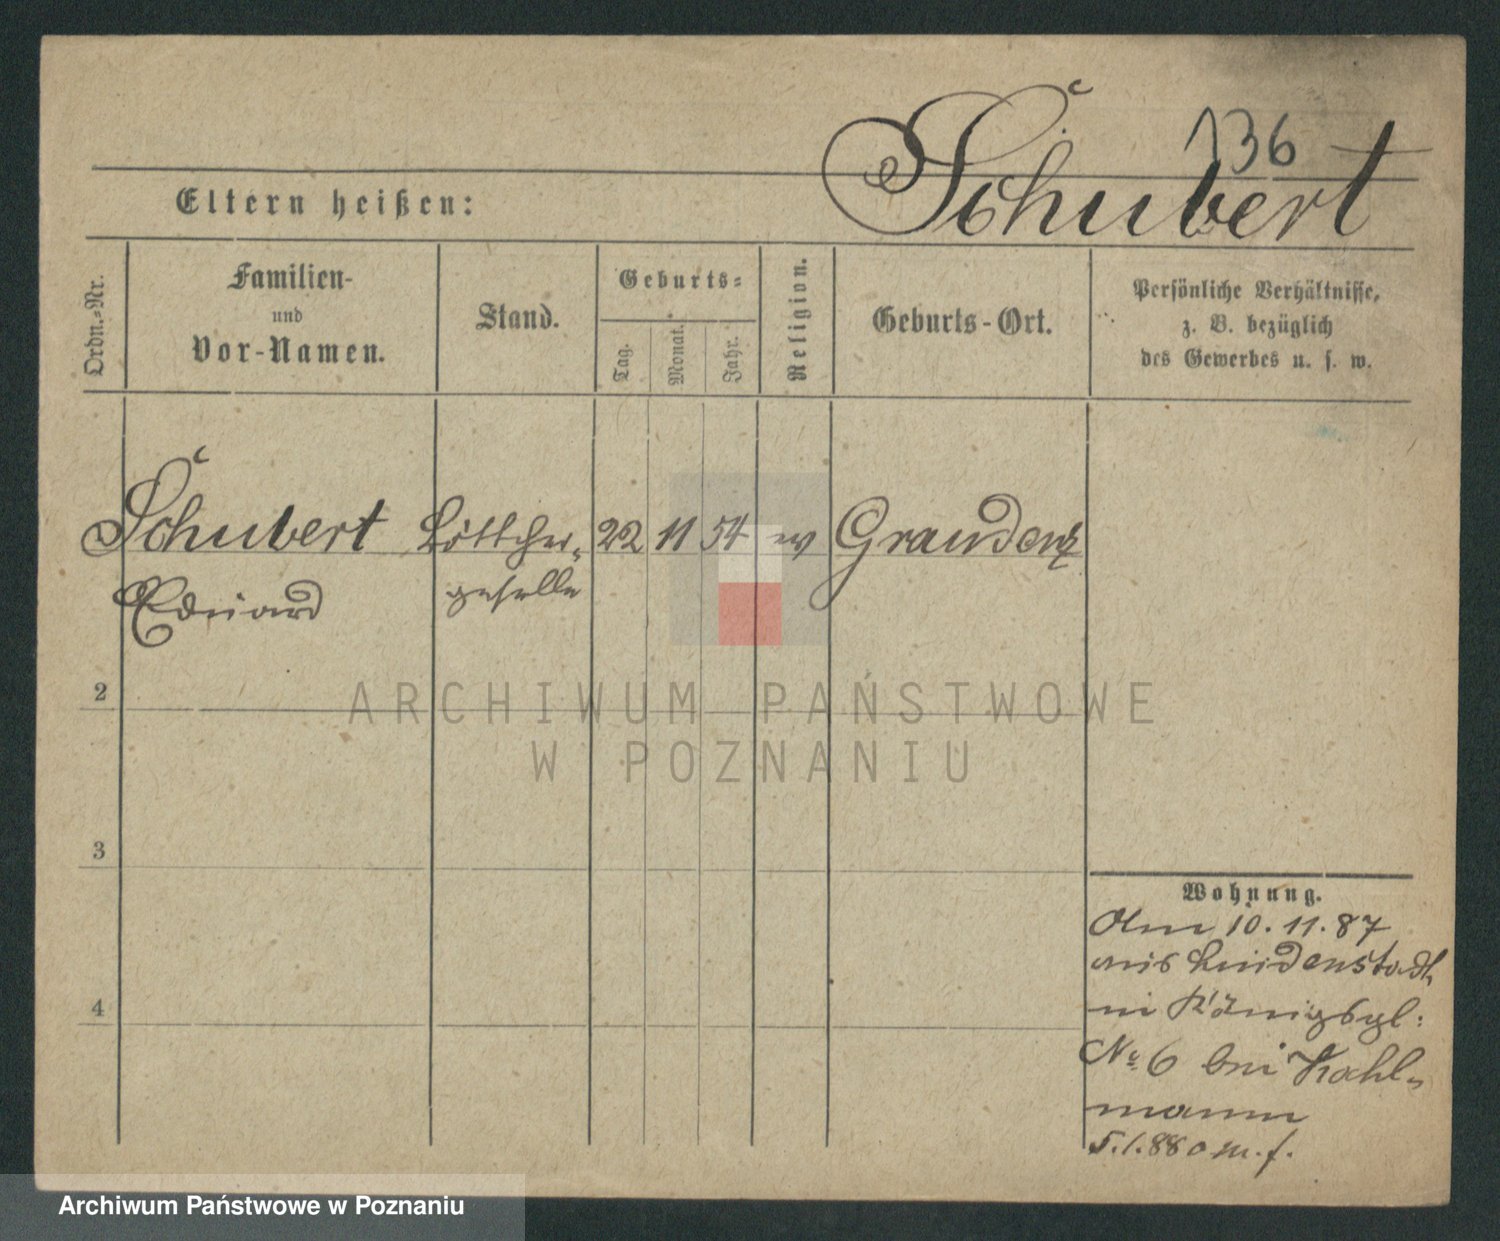 136
Schubert
Eltern heißen:
Ordn.-Nr.
Familien-
und
Vor-Namen.
Stand.
Geburts-
Tag.
Monat.
Jahr.
Religion.
Geburts-Ort.
Persönliche Verhältnisse,
z. B. bezüglich
des Gewerbes u. s. w.
Schubert Böttcher- 22 11 54 ev Graudenz
Eduard geselle
2
3
4
ARCHIWUM PAŃSTWOWE
W POZNANIU
Wohnung.
10.11.87
aus Lindenstadt
in Königspl:
No 6 bei Kahl-
mann
5.1.88 o m. f.
Archiwum Państwowe w Poznaniu